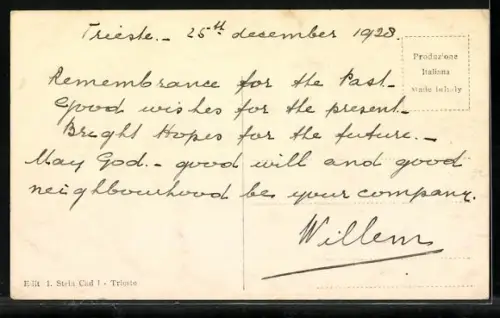 Trieste.- 25th desember 1928
Produzione
Italiana
Made in Italy
Remembrance for the Past.-
Good wishes for the present.-
Bright Hopes for the future.-
May God.- good will and good
neighbourhood be your company.
Willem
Edit I. Stein Cad I - Trieste